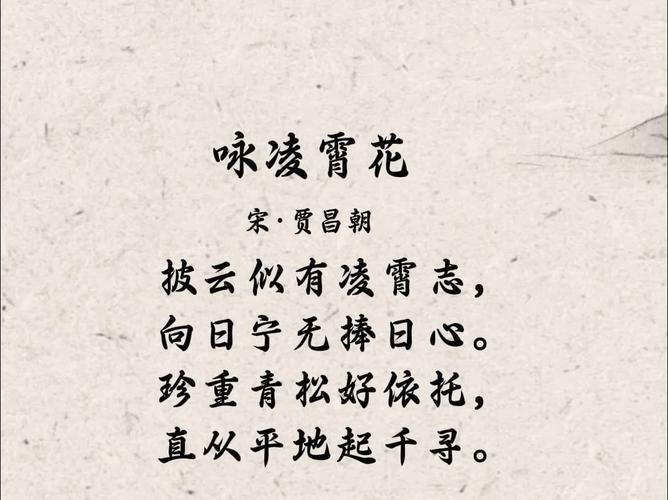 咏凌霄花
宋·贾昌朝
披云似有凌霄志，
向日宁无捧日心。
珍重青松好依托，
直从平地起千寻。